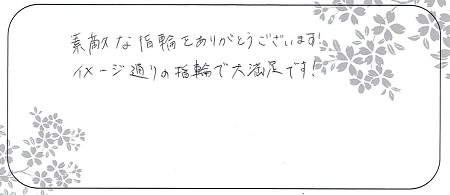 素敵な指輪をありがとうございます!
イメージ通りの指輪で大満足です!